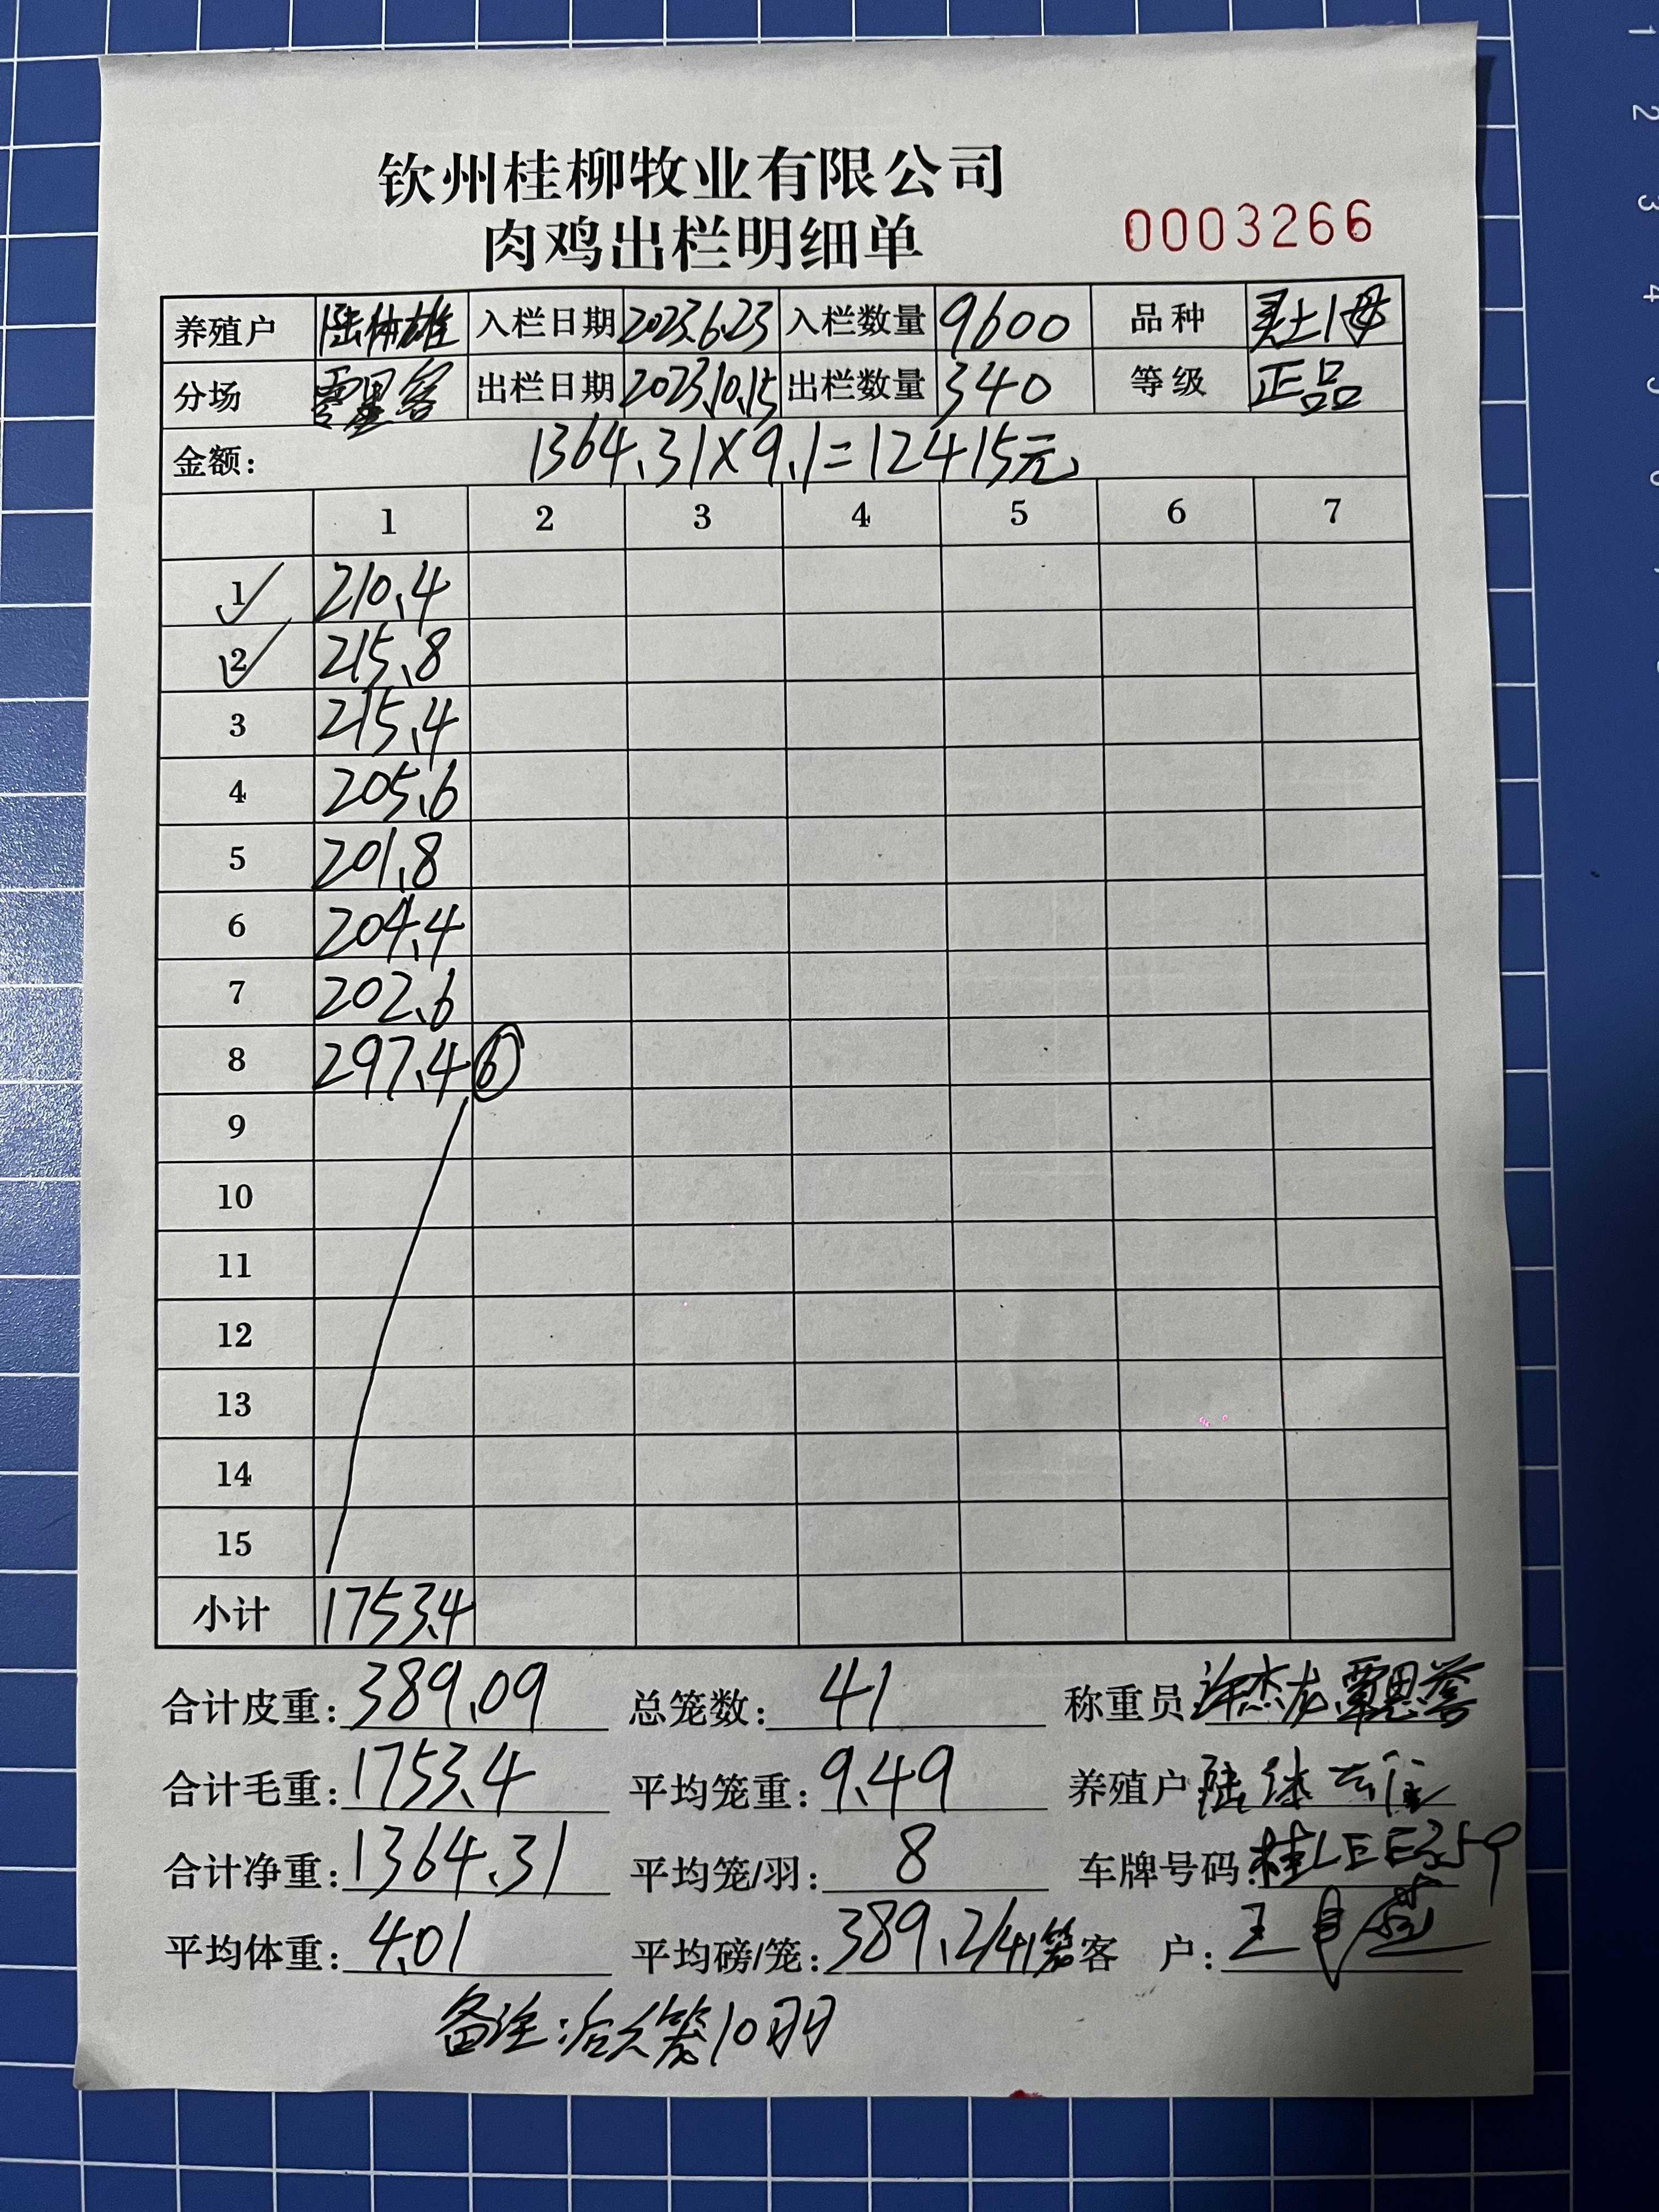 钦州桂柳牧业有限公司
肉鸡出栏明细单 0003266
养殖户 入栏日期 2023.6.23 入栏数量 9600 品种
分场 出栏日期 2023.10.15 出栏数量 340 等级 正品
金额: 1364.31×9.1=12415元
1 2 3 4 5 6 7
1 210.4
2 215.8
3 215.4
4 205.6
5 201.8
6 204.4
7 202.6
8 297.4 6
9
10
11
12
13
14
15
小计 1753.4
合计皮重: 389.09 总笼数: 41 称重员:
合计毛重: 1753.4 平均笼重: 9.49 养殖户
合计净重: 1364.31 平均笼/羽: 8 车牌号码: 桂LEE359
平均体重: 4.01 平均磅/笼: 389.2/41笼 客 户:
备注: 笼10羽
1
2
3
4
5
6